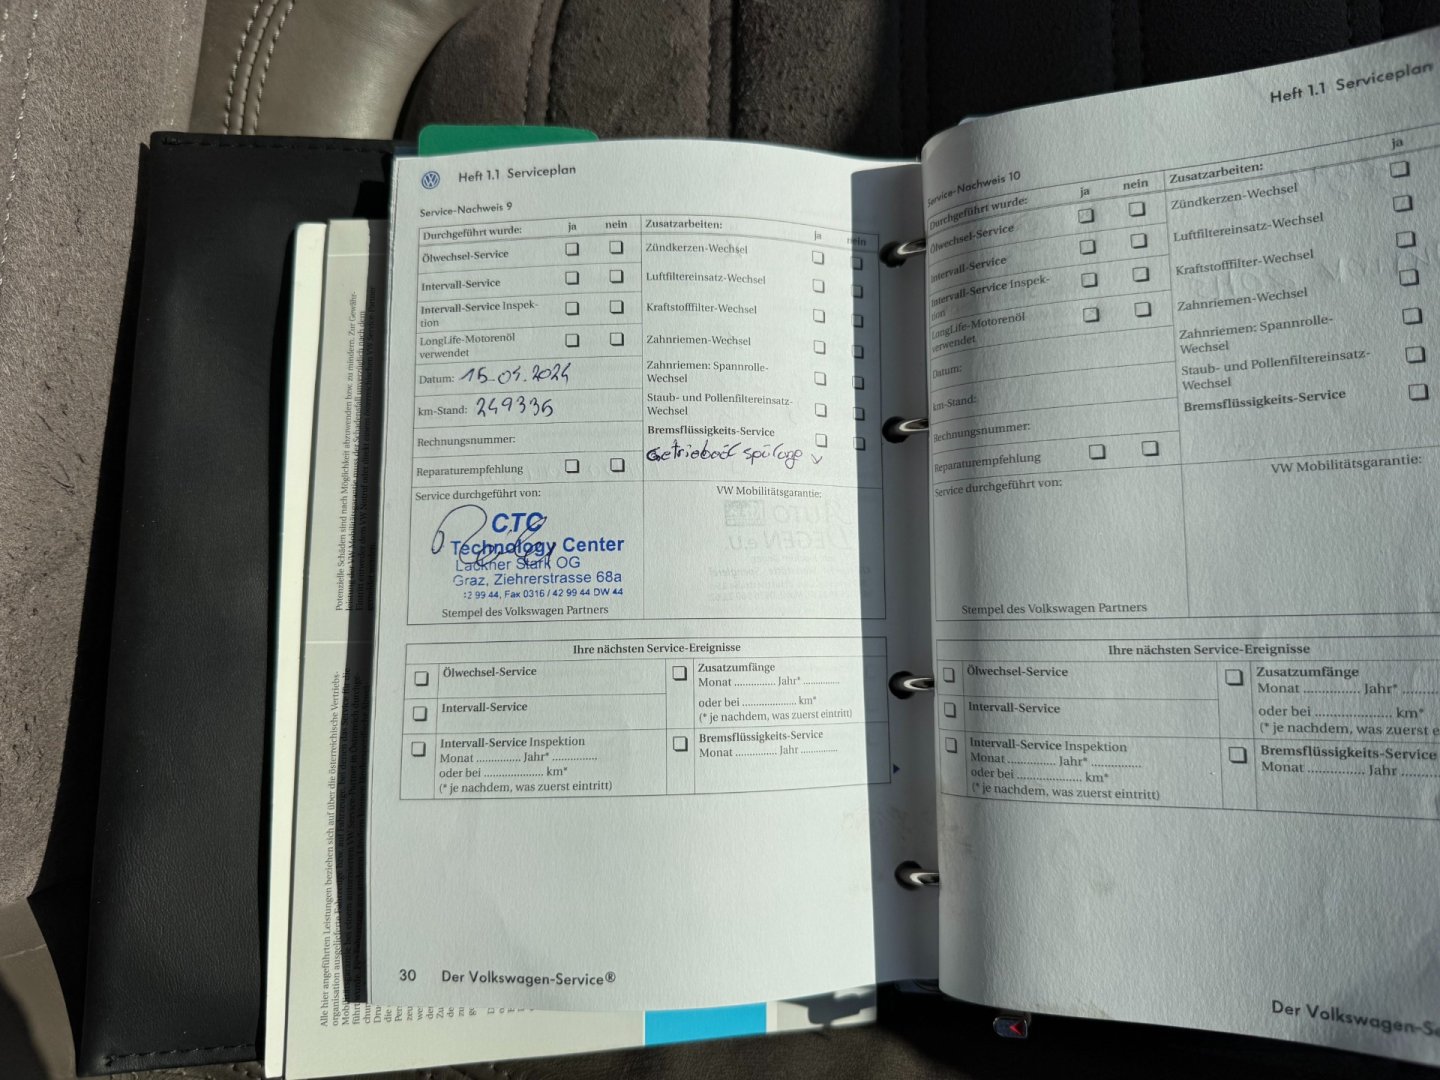 Heft 1.1 Serviceplan
Service-Nachweis 9
Durchgeführt wurde: ja nein Zusatzarbeiten: ja nein
Ölwechsel-Service
Zündkerzen-Wechsel
Intervall-Service
Luftfiltereinsatz-Wechsel
Intervall-Service Inspek-
tion
Kraftstofffilter-Wechsel
LongLife-Motorenöl
verwendet
Zahnriemen-Wechsel
Datum: 15.04.2024
Zahnriemen: Spannrolle-
Wechsel
km-Stand: 249335
Staub- und Pollenfiltereinsatz-
Wechsel
Rechnungsnummer:
Bremsflüssigkeits-Service
Getriebeöl spülung
Reparaturempfehlung
Service durchgeführt von:
VW Mobilitätsgarantie:
CTC
Technology Center
Lackner Stark OG
Graz, Ziehrerstrasse 68a
2 99 44, Fax 0316 / 42 99 44 DW 44
Stempel des Volkswagen Partners
Ihre nächsten Service-Ereignisse
Ölwechsel-Service
Intervall-Service
Intervall-Service Inspektion
Monat .............. Jahr* ..............
oder bei ...................... km*
(* je nachdem, was zuerst eintritt)
Zusatzumfänge
Monat .............. Jahr* ..............
oder bei ...................... km*
(* je nachdem, was zuerst eintritt)
Bremsflüssigkeits-Service
Monat .............. Jahr ..............
30 Der Volkswagen-Service®
Heft 1.1 Serviceplan
Service-Nachweis 10
Durchgeführt wurde: ja nein Zusatzarbeiten: ja
Ölwechsel-Service
Zündkerzen-Wechsel
Intervall-Service
Luftfiltereinsatz-Wechsel
Intervall-Service Inspek-
tion
Kraftstofffilter-Wechsel
LongLife-Motorenöl
verwendet
Zahnriemen-Wechsel
Datum:
Zahnriemen: Spannrolle-
Wechsel
km-Stand:
Staub- und Pollenfiltereinsatz-
Wechsel
Rechnungsnummer:
Bremsflüssigkeits-Service
Reparaturempfehlung
Service durchgeführt von:
VW Mobilitätsgarantie:
Stempel des Volkswagen Partners
Ihre nächsten Service-Ereignisse
Ölwechsel-Service
Intervall-Service
Intervall-Service Inspektion
Monat .............. Jahr* ..............
oder bei ...................... km*
(* je nachdem, was zuerst eintritt)
Zusatzumfänge
Monat .............. Jahr* .........
oder bei ...................... km*
(* je nachdem, was zuerst e
Bremsflüssigkeits-Service
Monat .............. Jahr .........
Der Volkswagen-Se